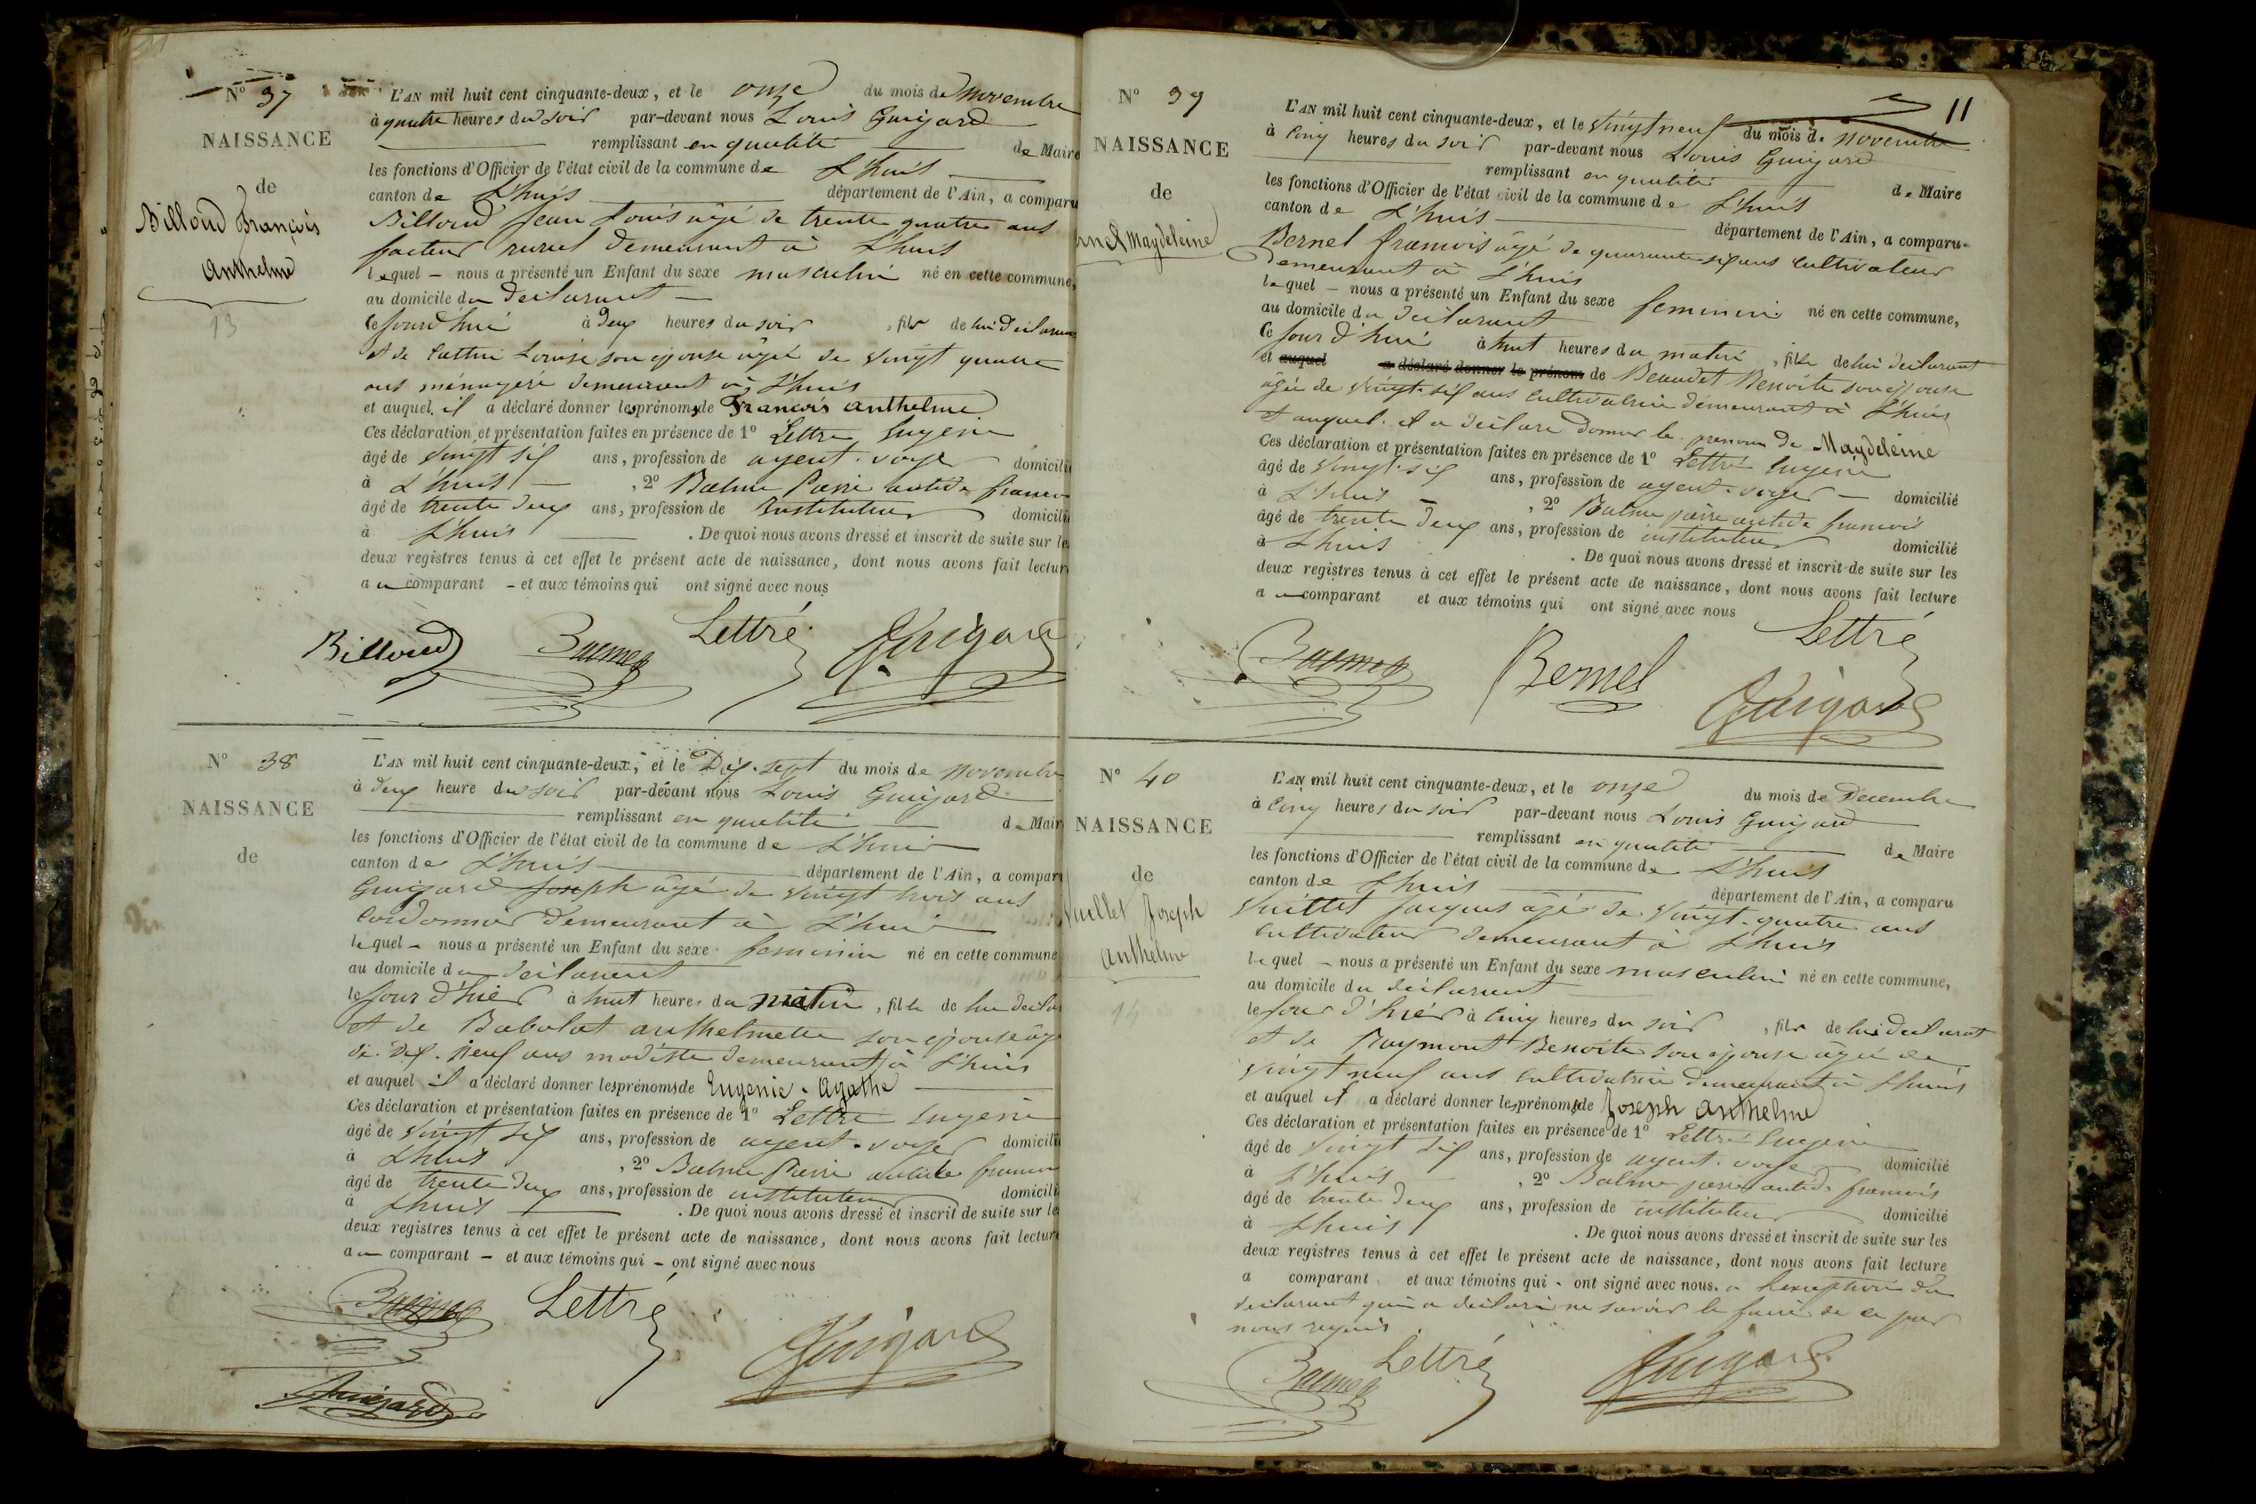 N° 37
NAISSANCE
de
Billoud François
Anthelme
13
L'AN mil huit cent cinquante-deux, et le onze du mois de Novembre
à quatre heures du soir par-devant nous Louis Guigard
remplissant en qualité de Maire
les fonctions d'Officier de l'état civil de la commune de L'huis
canton de L'huis département de l'Ain, a comparu
Billoud Jean Louis âgé de trente quatre ans
facteur rural demeurant à L'huis
lequel – nous a présenté un Enfant du sexe masculin né en cette commune,
au domicile du déclarant –
ce jourd'hui à deux heures du soir , fils de lui déclarant
et de Louise son épouse âgée de vingt quatre
ans ménagère demeurant à L'huis
et auquel il a déclaré donner les prénoms de François Anthelme
Ces déclaration et présentation faites en présence de 1° Lettré Eugène
âgé de vingt six ans, profession de agent-voyer domicilié
à L'huis – , 2° Balme Pierre antide françois
âgé de trente deux ans, profession de Instituteur domicilié
à L'huis . De quoi nous avons dressé et inscrit de suite sur les
deux registres tenus à cet effet le présent acte de naissance, dont nous avons fait lecture
au comparant – et aux témoins qui ont signé avec nous
Billoud Balme Lettré Guigard
N° 38
NAISSANCE
de
L'AN mil huit cent cinquante-deux, et le Dix-sept du mois de Novembre
à deux heure du soir par-devant nous Louis Guigard
remplissant en qualité de Maire
les fonctions d'Officier de l'état civil de la commune de L'huis
canton de L'huis département de l'Ain, a comparu
Guigard Joseph âgé de vingt trois ans
Cordonnier demeurant à L'huis
lequel – nous a présenté un Enfant du sexe feminin né en cette commune
au domicile du déclarant
le jour d'hier à huit heures du matin , fille de lui déclarant
et de Babolat anthelmette son épouse âgée
de dix-neuf ans modiste demeurant à L'huis
et auquel il a déclaré donner les prénoms de Eugenie-Agathe
Ces déclaration et présentation faites en présence de 1° Lettré Eugène
âgé de vingt six ans, profession de agent-voyer domicilié
à L'huis , 2° Balme Pierre antide françois
âgé de trente deux ans, profession de instituteur domicilié
à L'huis . De quoi nous avons dressé et inscrit de suite sur les
deux registres tenus à cet effet le présent acte de naissance, dont nous avons fait lecture
au comparant – et aux témoins qui – ont signé avec nous
Balme Lettré Guigard
Guigard
11
N° 39
NAISSANCE
de
Magdeleine
L'AN mil huit cent cinquante-deux, et le vingt neuf du mois de Novembre
à cinq heures du soir par-devant nous Louis Guigard
remplissant en qualité de Maire
les fonctions d'Officier de l'état civil de la commune de L'huis
canton de L'huis département de l'Ain, a comparu
Bernel françois âgé de quarante-six ans cultivateur
demeurant à L'huis
lequel – nous a présenté un Enfant du sexe feminin né en cette commune,
au domicile du déclarant
ce jour d'hui à huit heures du matin , fille de lui déclarant
et auquel a déclaré donner le prénom de Beaudet Benoite son épouse
âgée de vingt-six ans cultivatrice demeurant à L'huis
et auquel il a déclaré donner le prenom de Magdeleine
Ces déclaration et présentation faites en présence de 1° Lettré Eugène
âgé de vingt-six ans, profession de agent-voyer – domicilié
à L'huis – , 2° Balme pierre antide françois
âgé de trente deux ans, profession de instituteur domicilié
à L'huis . De quoi nous avons dressé et inscrit de suite sur les
deux registres tenus à cet effet le présent acte de naissance, dont nous avons fait lecture
au comparant et aux témoins qui ont signé avec nous
Balme Bernel Lettré
Guigard
N° 40
NAISSANCE
de
Vuillet Joseph
Anthelme
14
L'AN mil huit cent cinquante-deux, et le onze du mois de Decembre
à cinq heures du soir par-devant nous Louis Guigard
remplissant en qualité de Maire
les fonctions d'Officier de l'état civil de la commune de L'huis
canton de L'huis département de l'Ain, a comparu
Vuillet Jacques âgé de vingt-quatre ans
cultivateur demeurant à L'huis
lequel – nous a présenté un Enfant du sexe masculin né en cette commune,
au domicile du déclarant
le jour d'hier à cinq heures du soir , fils de lui déclarant
et de Raymont Benoite son épouse âgée de
vingt neuf ans cultivatrice demeurant à L'huis
et auquel il a déclaré donner les prénoms de Joseph Anthelme
Ces déclaration et présentation faites en présence de 1° Lettré Eugène
âgé de vingt six ans, profession de agent-voyer domicilié
à L'huis , 2° Balme pierre antide françois
âgé de trente deux ans, profession de instituteur domicilié
à L'huis . De quoi nous avons dressé et inscrit de suite sur les
deux registres tenus à cet effet le présent acte de naissance, dont nous avons fait lecture
a comparant et aux témoins qui – ont signé avec nous. a l'exception du
déclarant qui a déclaré ne savoir le faire de ce par
nous requis
Balme Lettré Guigard